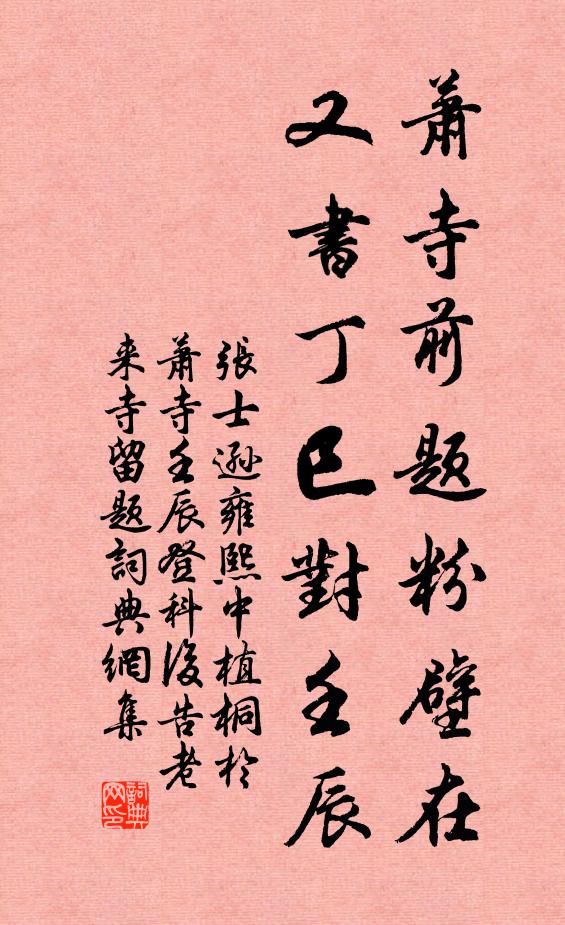 蕭寺前題粉壁在
又書丁巳對壬辰
張士遜雍熙中植桐於
蕭寺壬辰登科後告老
来寺留題詞典網集
詞典网印